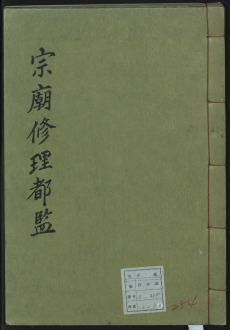 宗廟修理都監
254